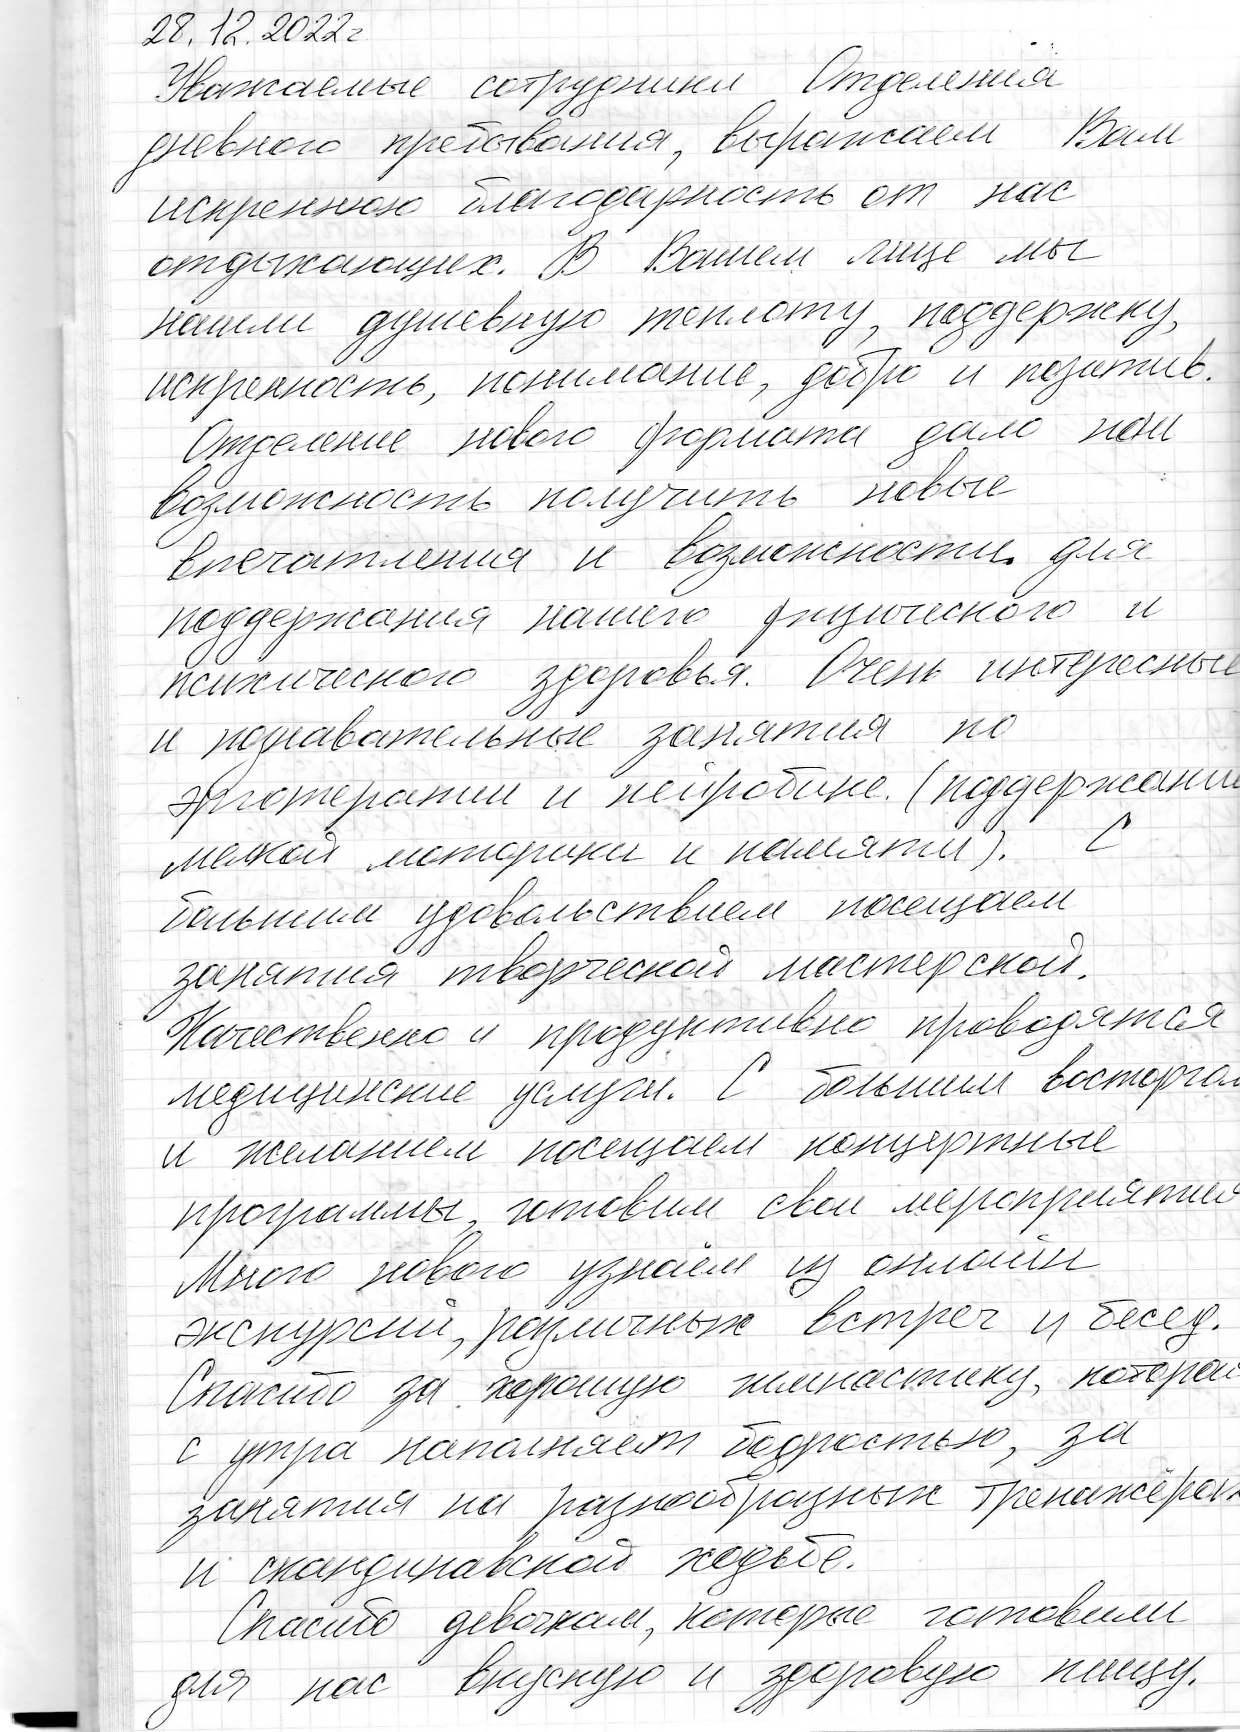 28.12.2022г
Уважаемые сотрудники Отделения
дневного пребывания, выражаем Вам
искреннюю благодарность от нас
отдыхающих. В Вашем лице мы
нашли душевную теплоту, поддержку,
искренность, понимание, добро и позитив.
Отделение нового формата дало нам
возможность получить новые
впечатления и возможности для
поддержания нашего физического и
психического здоровья. Очень интересные
и познавательные занятия по
эрготерапии и нейробике. (поддержание
мелкой моторики и памяти). С
большим удовольствием посещаем
занятия творческой мастерской.
Качественно и продуктивно проводятся
медицинские услуги. С большим восторгом
и желанием посещаем концертные
программы, готовим свои мероприятия
Много нового узнаём из онлайн
экскурсий, различных встреч и бесед.
Спасибо за хорошую гимнастику, которая
с утра наполняет бодростью, за
занятия на разнообразных тренажёрах
и скандинавской ходьбе.
Спасибо девочкам, которые готовили
для нас вкусную и здоровую пищу.